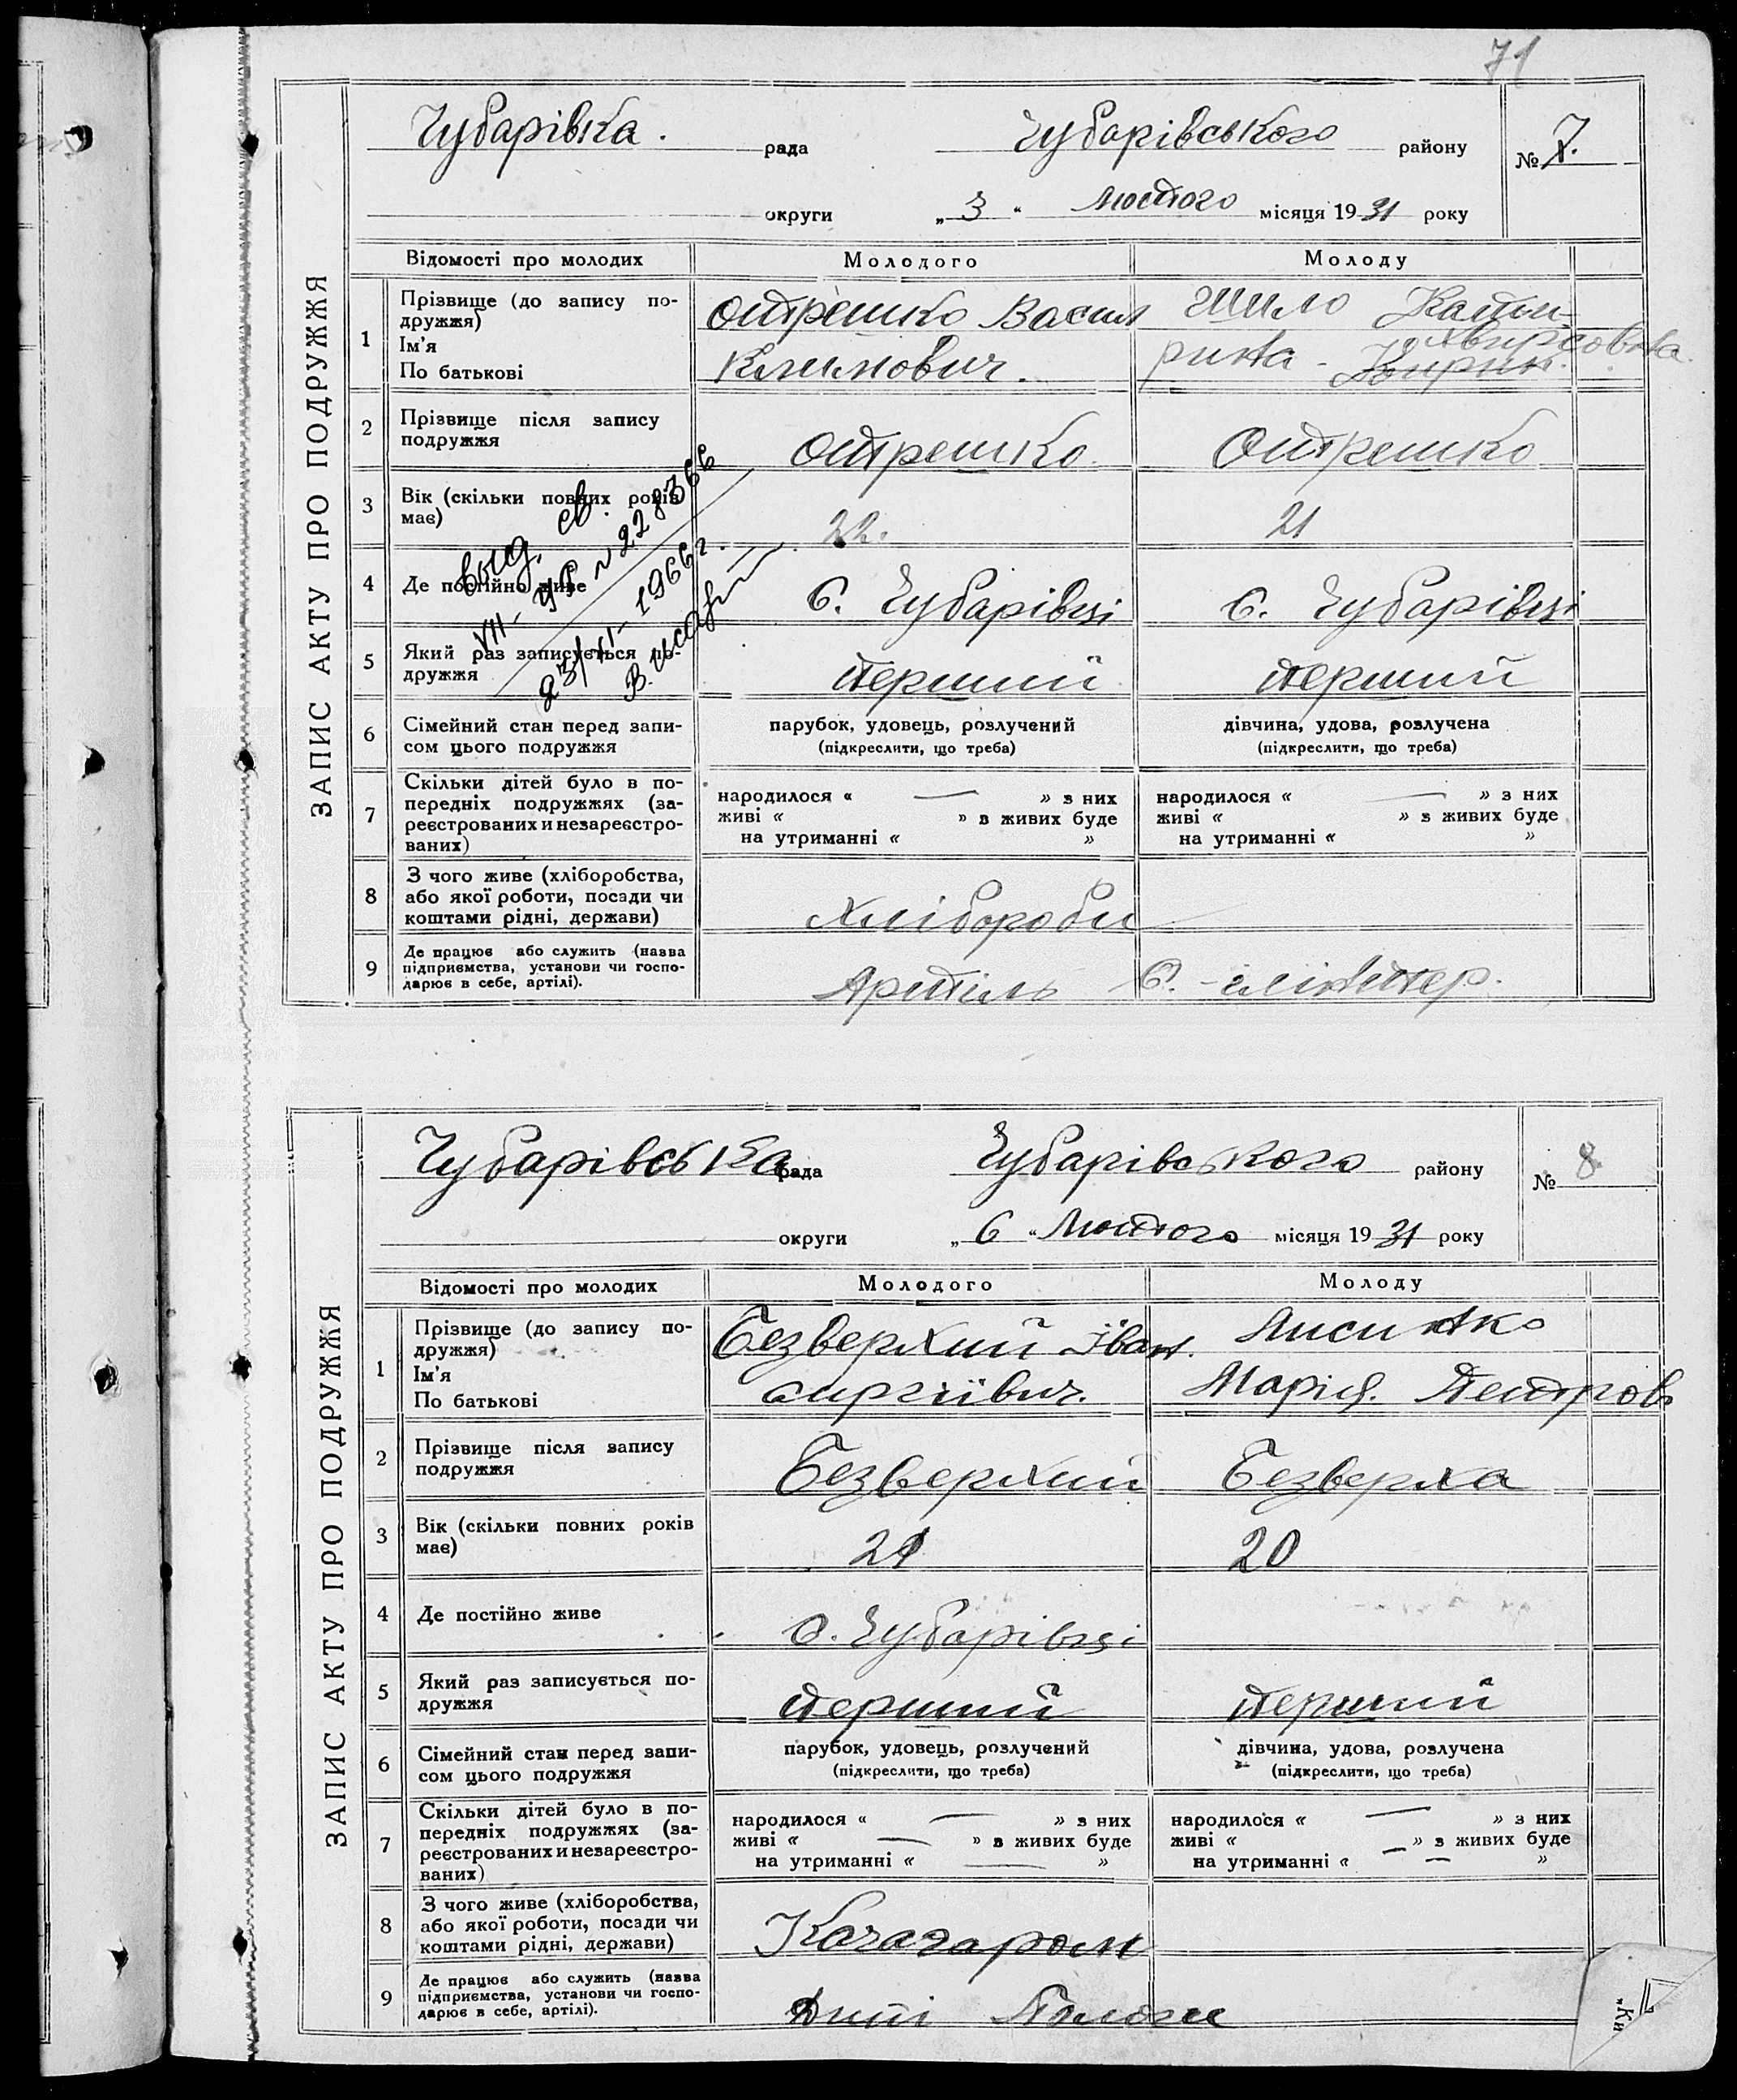 71
ЗАПИС АКТУ ПРО ПОДРУЖЖЯ
Чубарівка. рада Чубарівського району № 7.
округи „ 3 “ Лютого місяця 1931 року
Відомості про молодих Молодого Молоду
1 Прізвище (до запису по-
дружжя)
Ім'я
По батькові
Отрешко Васил
Климович.
Шило Кати-
рина -
2 Прізвище після запису
подружжя
Отрешко Отрешко
3 Вік (скільки повних років
має)
22. 21
4 Де постійно живе
С. Чубарівці С. Чубарівці
5 Який раз записується по-
дружжя
перший перший
выд. св.
VII-УР N 228366
23/VI-1966 г.
6 Сімейний стан перед запи-
сом цього подружжя
парубок, удовець, розлучений
(підкреслити, що треба)
дівчина, удова, розлучена
(підкреслити, що треба)
7 Скільки дітей було в по-
передніх подружжях (за-
реєстрованих и незареєстро-
ваних)
народилося « — » з них
живі « » в живих буде
на утриманні « »
народилося « — » з них
живі « » з живих буде
на утриманні « »
8 З чого живе (хліборобства,
або якої роботи, посади чи
коштами рідні, держави)
Хлібороби
9 Де працює або служить (назва
підприємства, установи чи госпо-
дарює в себе, артілі).
Артіль
ЗАПИС АКТУ ПРО ПОДРУЖЖЯ
Чубарівська рада Чубарівського району № 8
округи „ 6 “ Лютого місяця 1931 року
Відомості про молодих Молодого Молоду
1 Прізвище (до запису по-
дружжя)
Ім'я
По батькові
Безверхий Іван.
сиргіївич.
Лисинко
Марія. Петров
2 Прізвище після запису
подружжя
Безверхий Безверха
3 Вік (скільки повних років
має)
21 20
4 Де постійно живе
С. Чубарівці
5 Який раз записується по-
дружжя
перший перший
6 Сімейний стан перед запи-
сом цього подружжя
парубок, удовець, розлучений
(підкреслити, що треба)
дівчина, удова, розлучена
(підкреслити, що треба)
7 Скільки дітей було в по-
передніх подружжях (за-
реєстрованих и незареєстро-
ваних)
народилося « — » з них
живі « — » в живих буде
на утриманні « — »
народилося « — » з них
живі « — » з живих буде
на утриманні « — »
8 З чого живе (хліборобства,
або якої роботи, посади чи
коштами рідні, держави)
Качагаром
9 Де працює або служить (назва
підприємства, установи чи госпо-
дарює в себе, артілі).
Пологи
„Ки